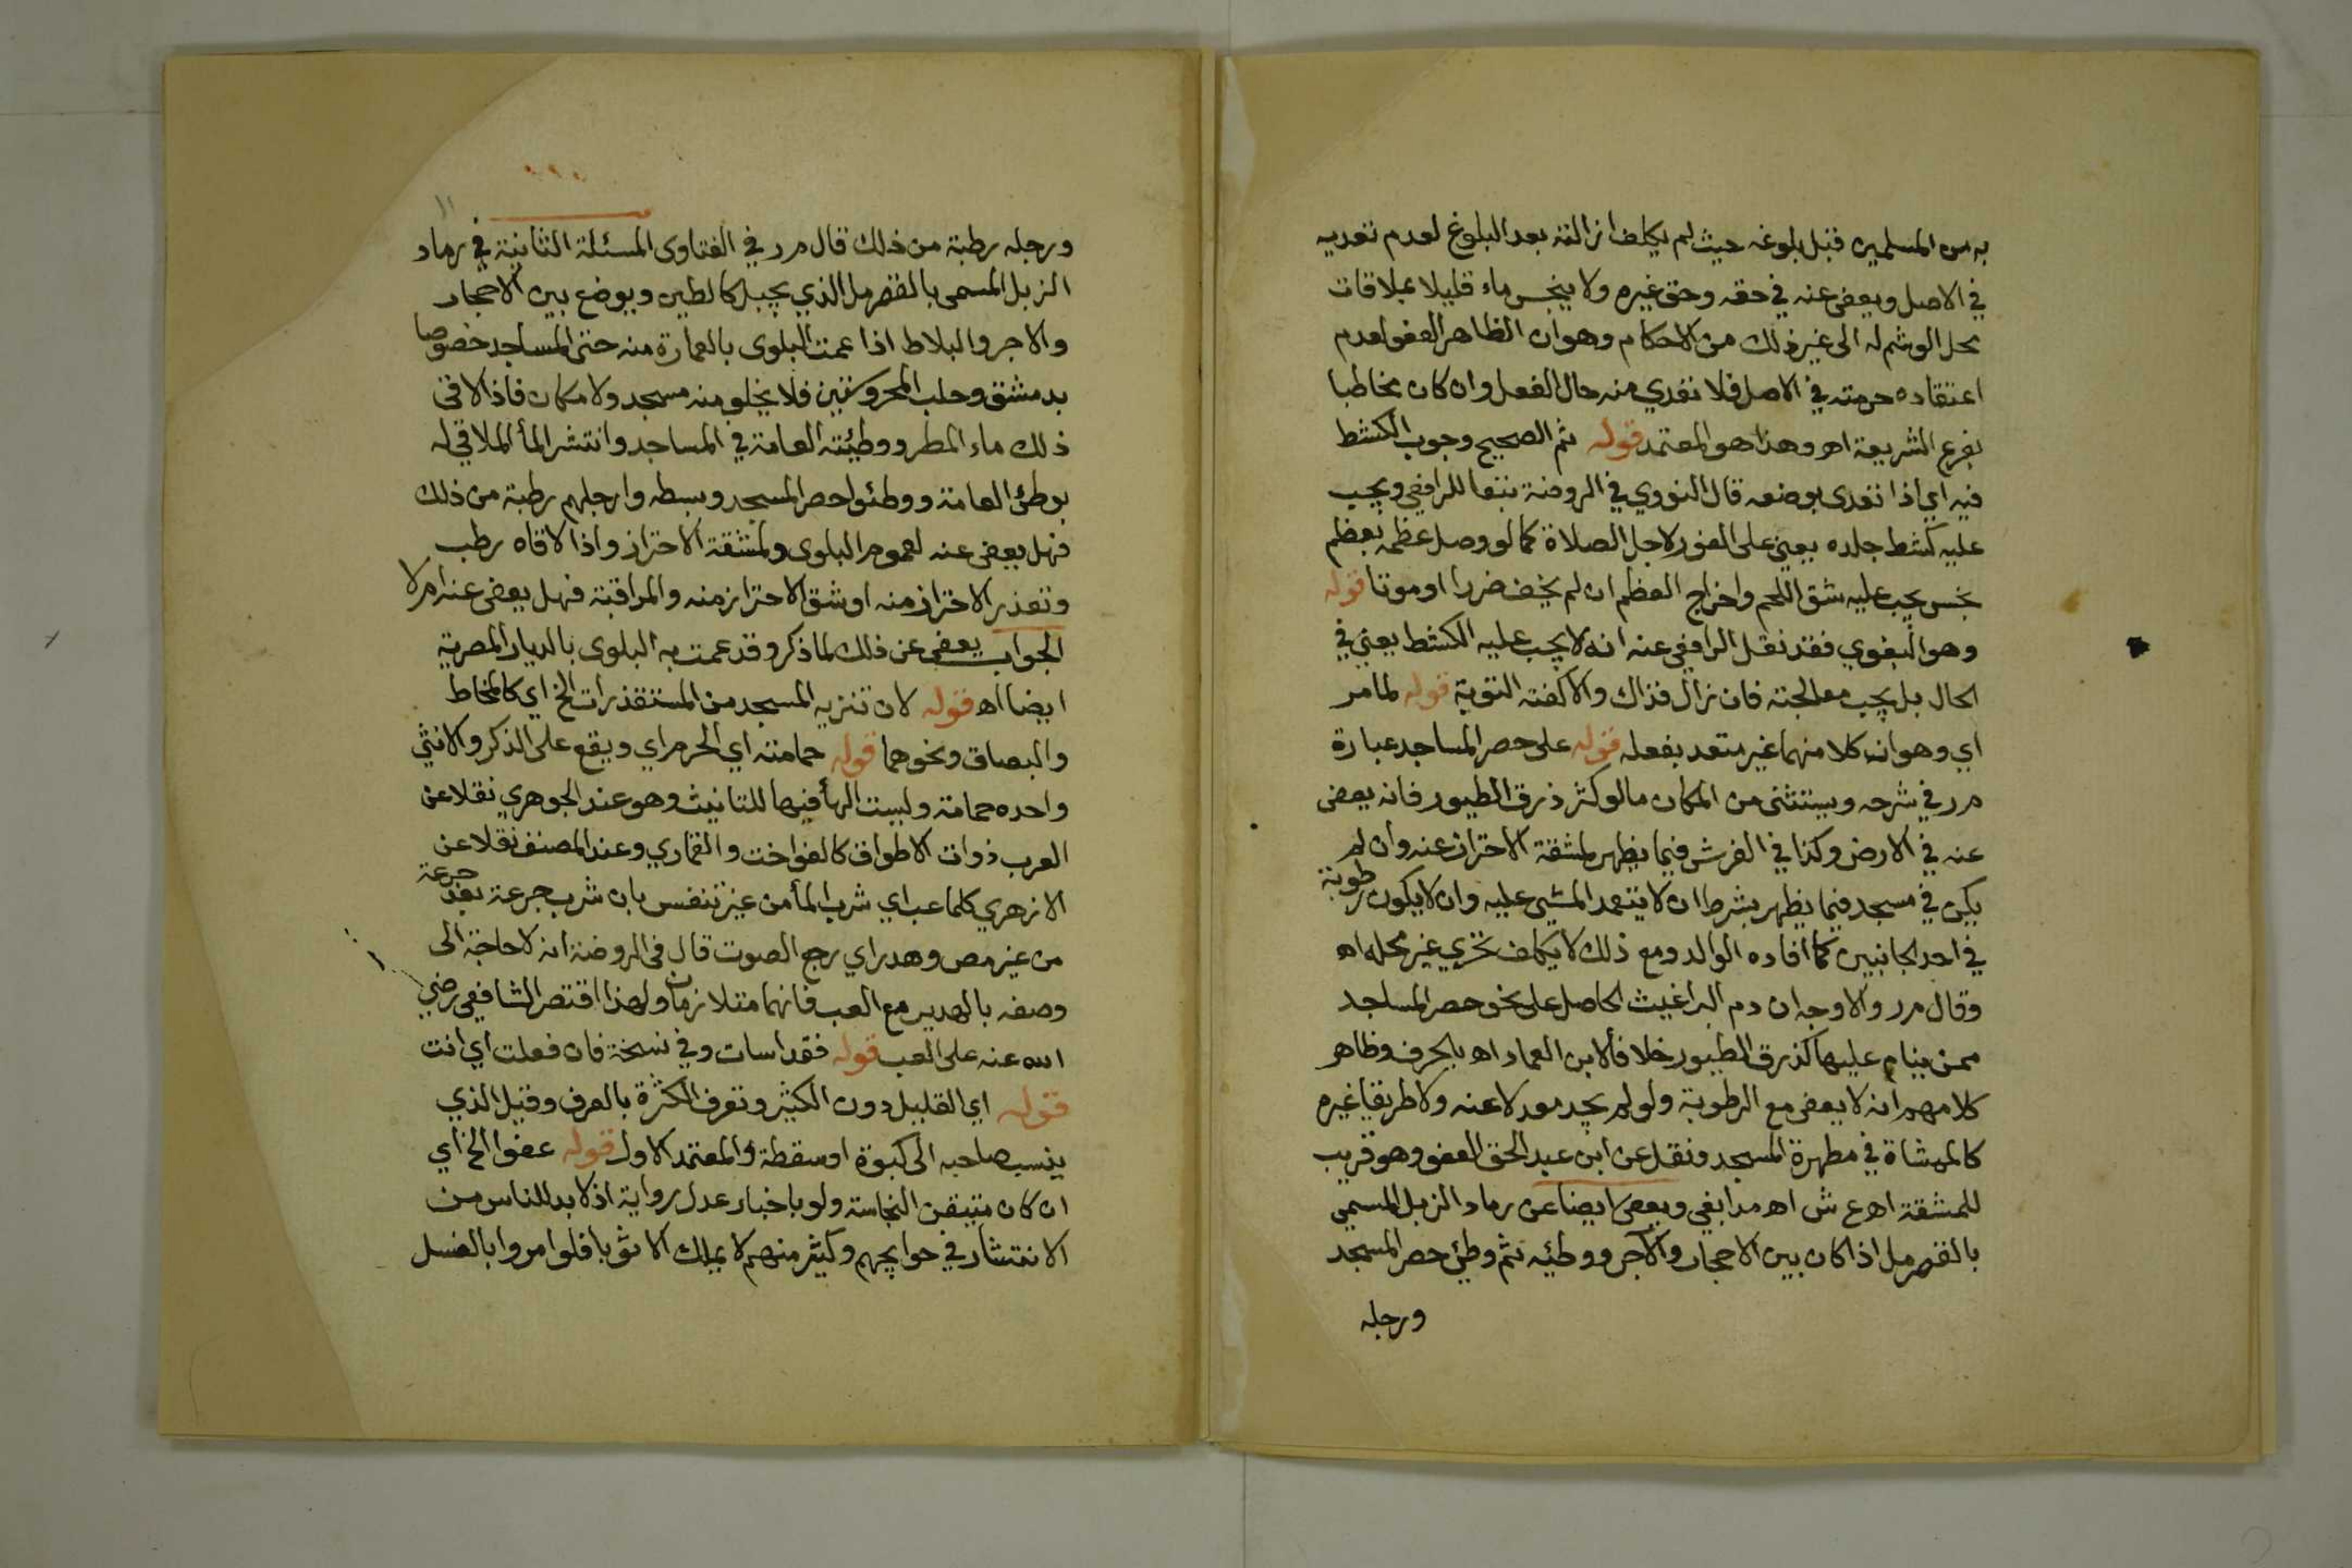 به من المسلمين قبل بلوغه حيث لم يكلف ازالته بعد البلوغ لعدم تعديه
في الاصل ويعفى عنه في حقه وحق غيره ولا ينجس ماء قليلا بملاقات
محل الوشم له الى غير ذلك من الاحكام وهو ان الظاهر العفو لعدم
اعتقاده حرمته في الاصل فلا تعدي منه حال الفعل وان كان مخاطبا
بفرع الشريعة اهـ وهذا هو المعتمد قوله ثم الصحيح وجوب الكشط
فيه اي اذا تعدى بوضعه قال النووي في الروضة تبعا للرافعي ويجب
عليه كشط جلده يعني على الفور لاجل الصلاة كما لو وصل عظمه بعظم
نجس يجب عليه شق اللحم واخراج العظم ان لم يخف ضررا او موتا قوله
وهو البغوي فقد نقل الرافعي عنه انه لا يجب عليه الكشط يعني في
الحال بل يجب معالجته فان زال فذاك والا كفته التوبة قوله لما مر
اي وهو ان كلا منهما غير متعد بفعله قوله على حصر المساجد عبارة
م ر في شرحه ويستثنى من المكان ما لو كثر ذرق الطيور فانه يعفى
عنه في الارض وكذا في الفرش فيما يظهر لمشقة الاحتراز عنه وان لم
يكن في مسجد فيما يظهر بشرط ان لا يتعمد المشي عليه وان لا يكون رطوبة
في احد الجانبين كما افاده الوالد ومع ذلك لا يكلف تحري غير محله اهـ
وقال م ر والاوجه ان دم البراغيث الحاصل على نحو حصر المساجد
ممن ينام عليها كذرق الطيور خلافا لابن العماد اهـ بالحرف وظاهر
كلامهم انه لا يعفى مع الرطوبة ولو لم يجد معدلا عنه ولا طريقا غيره
كالممشاة في مطهرة المسجد ونقل عن ابن عبد الحق العفو وهو قريب
للمشقة اهـ ع ش اهـ مدابغي ويعفى ايضا عن رماد الزبل المسمى
بالقصرمل اذا كان بين الاحجار والآجر ووطئه ثم وطئ حصر المسجد
ورجله
١١
ورجله رطبة من ذلك قال م ر في الفتاوى المسئلة الثانية في رماد
الزبل المسمى بالقصرمل الذي يجبل كالطين ويوضع بين الاحجار
والاجر والبلاط اذا عمت البلوى بالعمارة منه حتى المساجد خصوصا
بدمشق وحلب المحروستين فلا يخلو منه مسجد ولا مكان فاذا لاقى
ذلك ماء المطر ووطئته العامة في المساجد وانتشر المأ الملاقي له
بوطئ العامة ووطئوا حصر المسجد وبسطه وارجلهم رطبة من ذلك
فهل يعفى عنه لعموم البلوى ولمشقة الاحتراز واذا لاقاه رطب
وتعذر الاحتراز منه او شق الاحتراز منه والمراقبة فهل يعفى عنه ام لا
الجواب يعفى عن ذلك لما ذكر وقد عمت به البلوى بالديار المصرية
ايضا اهـ قوله لان تنزيه المسجد من المستقذرات الخ اي كالمخاط
والبصاق ونحوهما قوله حمامته اي الحرم اي ويقع على الذكر والانثى
واحده حمامة وليست الهأ فيها للتانيث وهو عند الجوهري نقلا عن
العرب ذوات الاطواق كالفواخت والقماري وعند المصنف نقلا عن
الازهري كلما عب اي شرب المأ من غير تنفس بان شرب جرعة بعد جرعة
من غير مص وهدر اي رجع الصوت قال في الروضة انه لا حاجة الى
وصفه بالهدير مع العب فانهما متلازمان ولهذا اقتصر الشافعي رضي
الله عنه على العب قوله فقد اسات وفي نسخة فان فعلت اي انت
قوله اي القليل دون الكثير وتعرف الكثرة بالعرف وقيل الذي
ينسب صاحبه الى كبوة او سقطة والمعتمد الاول قوله عفوا الخ اي
ان كان متيقن النجاسة ولو باخبار عدل رواية اذ لا بد للناس من
الانتشار في حوايجهم وكثير منهم لا يملك الا ثوبا فلو امروا بالغسل